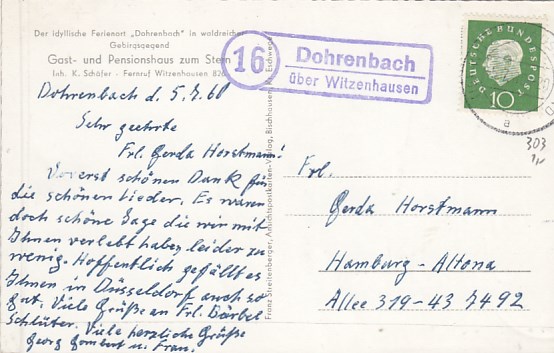 Der idyllische Ferienort „Dohrenbach" in waldreicher
Gebirgsgegend
Gast- und Pensionshaus zum Stern
Inh. K. Schäfer - Fernruf Witzenhausen
16
Dohrenbach
über Witzenhausen
DEUTSCHE BUNDESPOST
10
a
303
Dohrenbach d. 5.7.60
Sehr geehrte
Frl. Gerda Horstmann!
Vorerst schönen Dank für
die schönen Lieder. Es waren
doch schöne Tage die wir mit
Ihnen verlebt haben leider zu
wenig. Hoffentlich gefällt es
Ihnen in Düsseldorf auch so
gut. Viele Grüße an Frl. Bärbel
Schlüter. Viele herzliche Grüße
Georg u. Frau.
Franz Streitenberger, Ansichtspostkarten-Verlag, Bischhausen, Kr. Eschwege
Frl.
Gerda Horstmann
Hamburg-Altona
Allee 319-43 7492